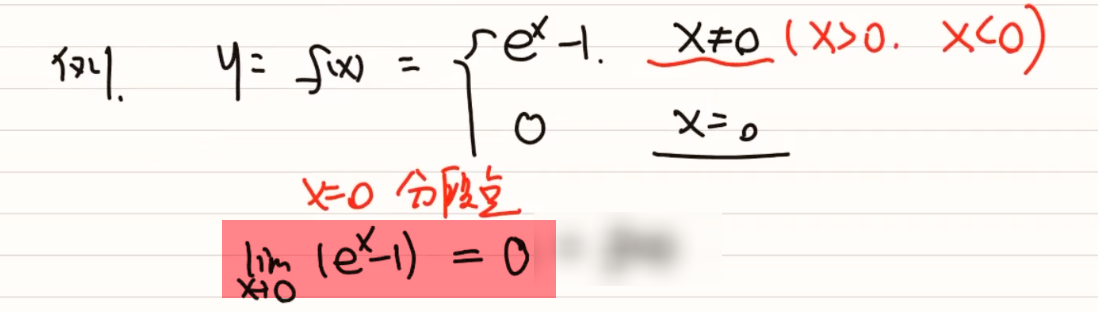 例. y = f(x) = { e^x - 1. x≠0 (x>0. x<0)
0 x=0
x=0 分段点
lim x→0 (e^x-1) = 0